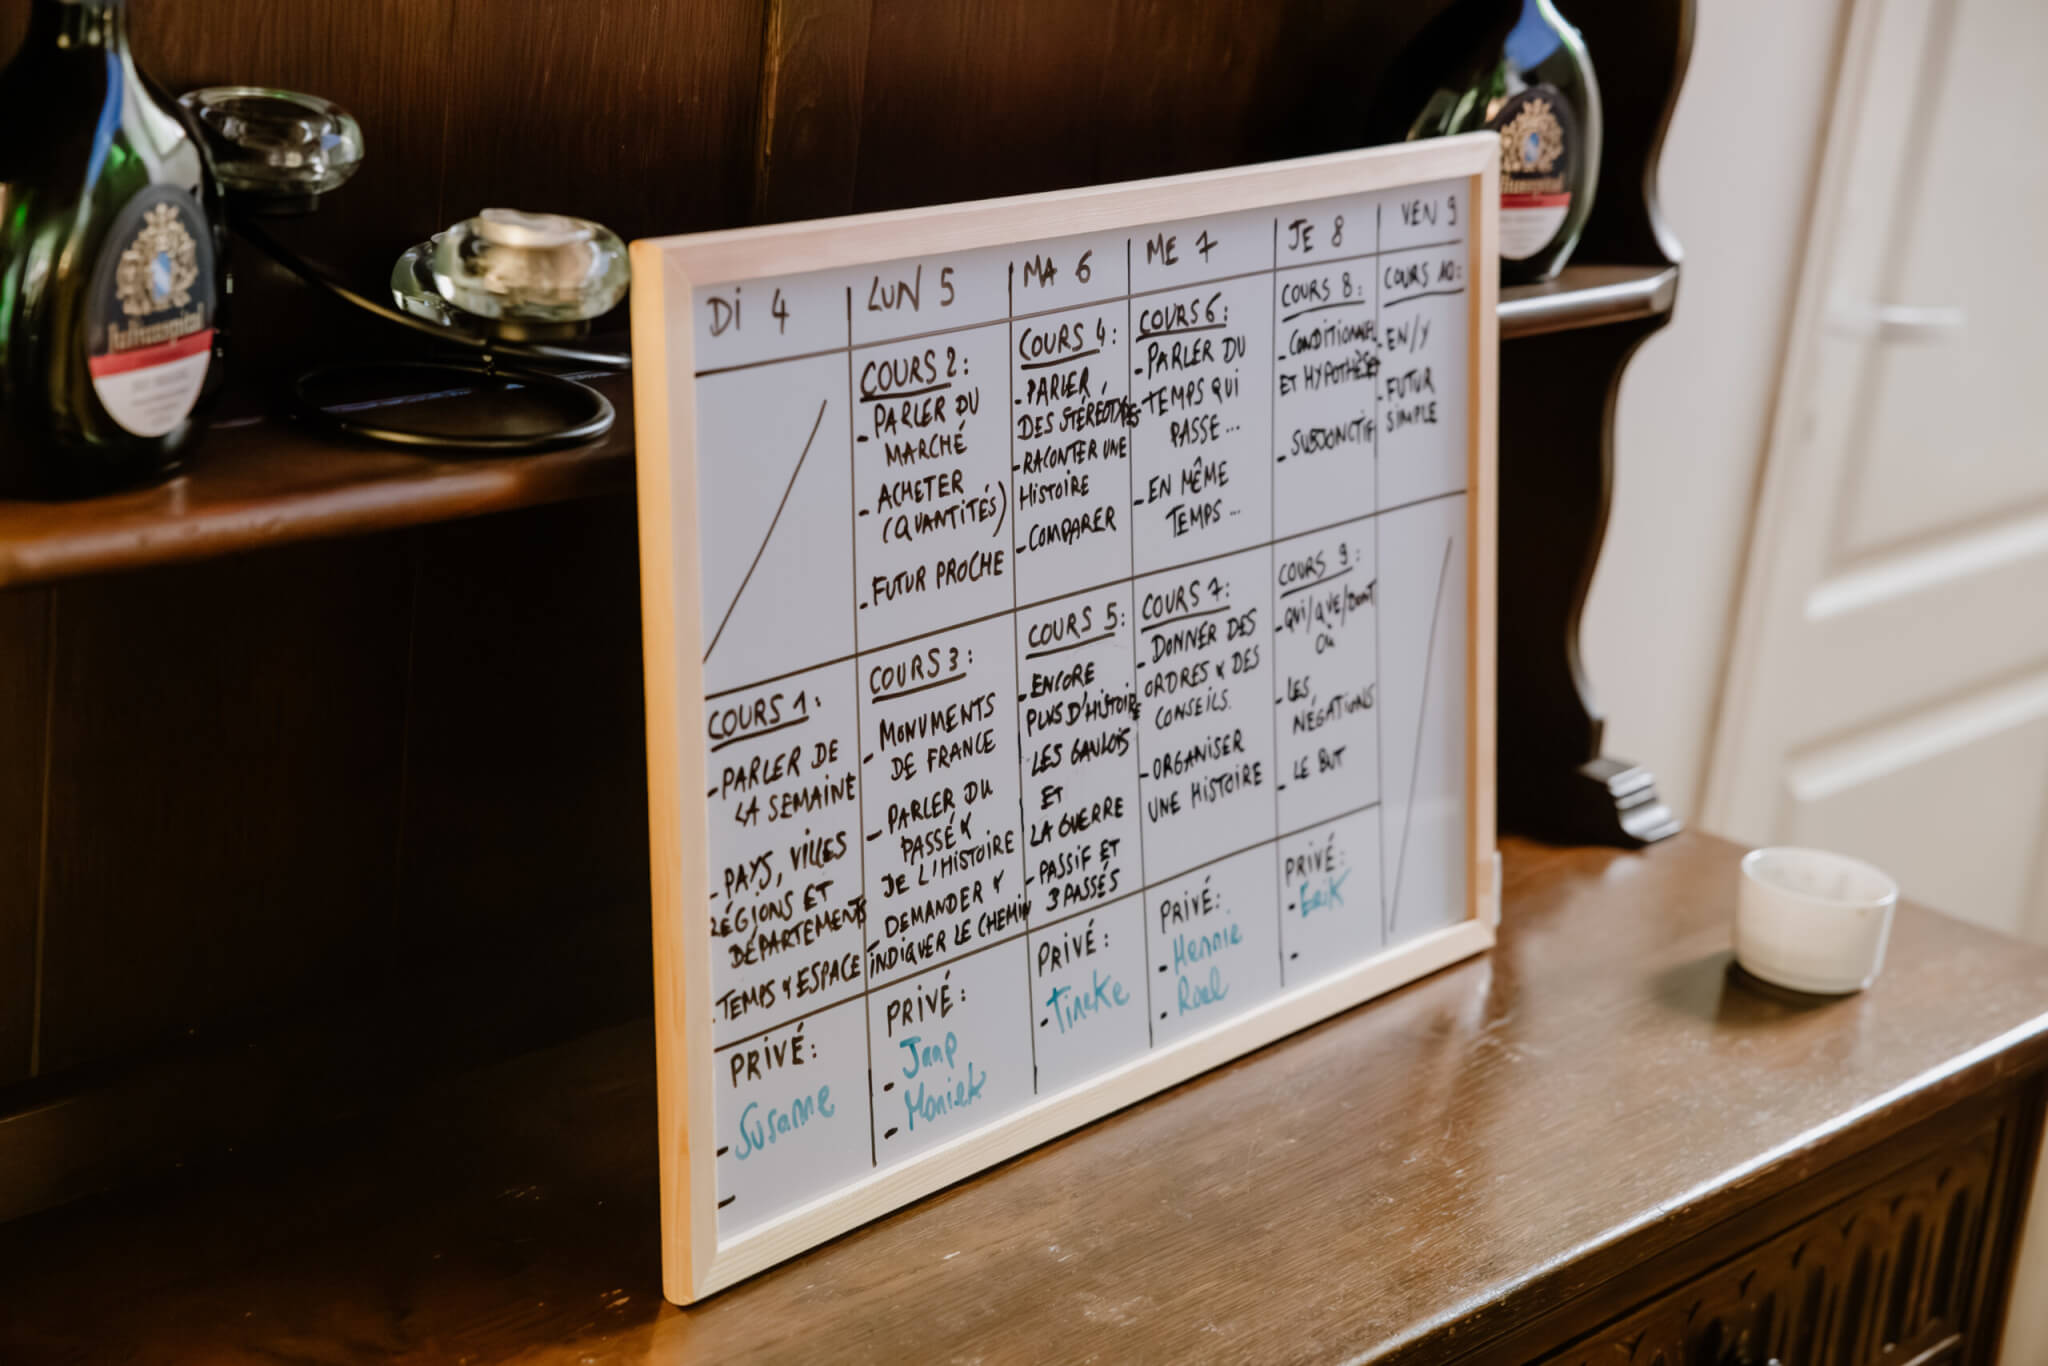 Di 4
LUN 5
MA 6
ME 7
JE 8
VEN 9
COURS 2:
- PARLER DU
MARCHÉ
- ACHETER
(QUANTITÉS)
- FUTUR PROCHE
COURS 4:
- PARLER
DES STÉRÉOTYPES
- RACONTER UNE
HISTOIRE
- COMPARER
COURS 6:
- PARLER DU
TEMPS QUI
PASSE...
- EN MÊME
TEMPS...
COURS 8:
- CONDITIONNEL
ET HYPOTHÈSES
- SUBJONCTIF
COURS 10:
- EN/Y
- FUTUR
SIMPLE
COURS 1:
- PARLER DE
LA SEMAINE
- PAYS, VILLES
RÉGIONS ET
DÉPARTEMENTS
- TEMPS & ESPACE
COURS 3:
- MONUMENTS
DE FRANCE
- PARLER DU
PASSÉ &
DE L'HISTOIRE
- DEMANDER &
INDIQUER LE CHEMIN
COURS 5:
- ENCORE
PLUS D'HISTOIRE
LES GAULOIS
ET
LA GUERRE
- PASSIF ET
3 PASSÉS
COURS 7:
- DONNER DES
ORDRES & DES
CONSEILS.
- ORGANISER
UNE HISTOIRE
COURS 9:
- QUI/QUE/DONT
OÙ
- LES
NÉGATIONS
- LE BUT
PRIVÉ:
- Susanne
-
PRIVÉ:
- Jaap
- Moniek
PRIVÉ:
- Tineke
PRIVÉ:
- Hennie
- Roel
PRIVÉ:
- Erik
-
Juliusspital